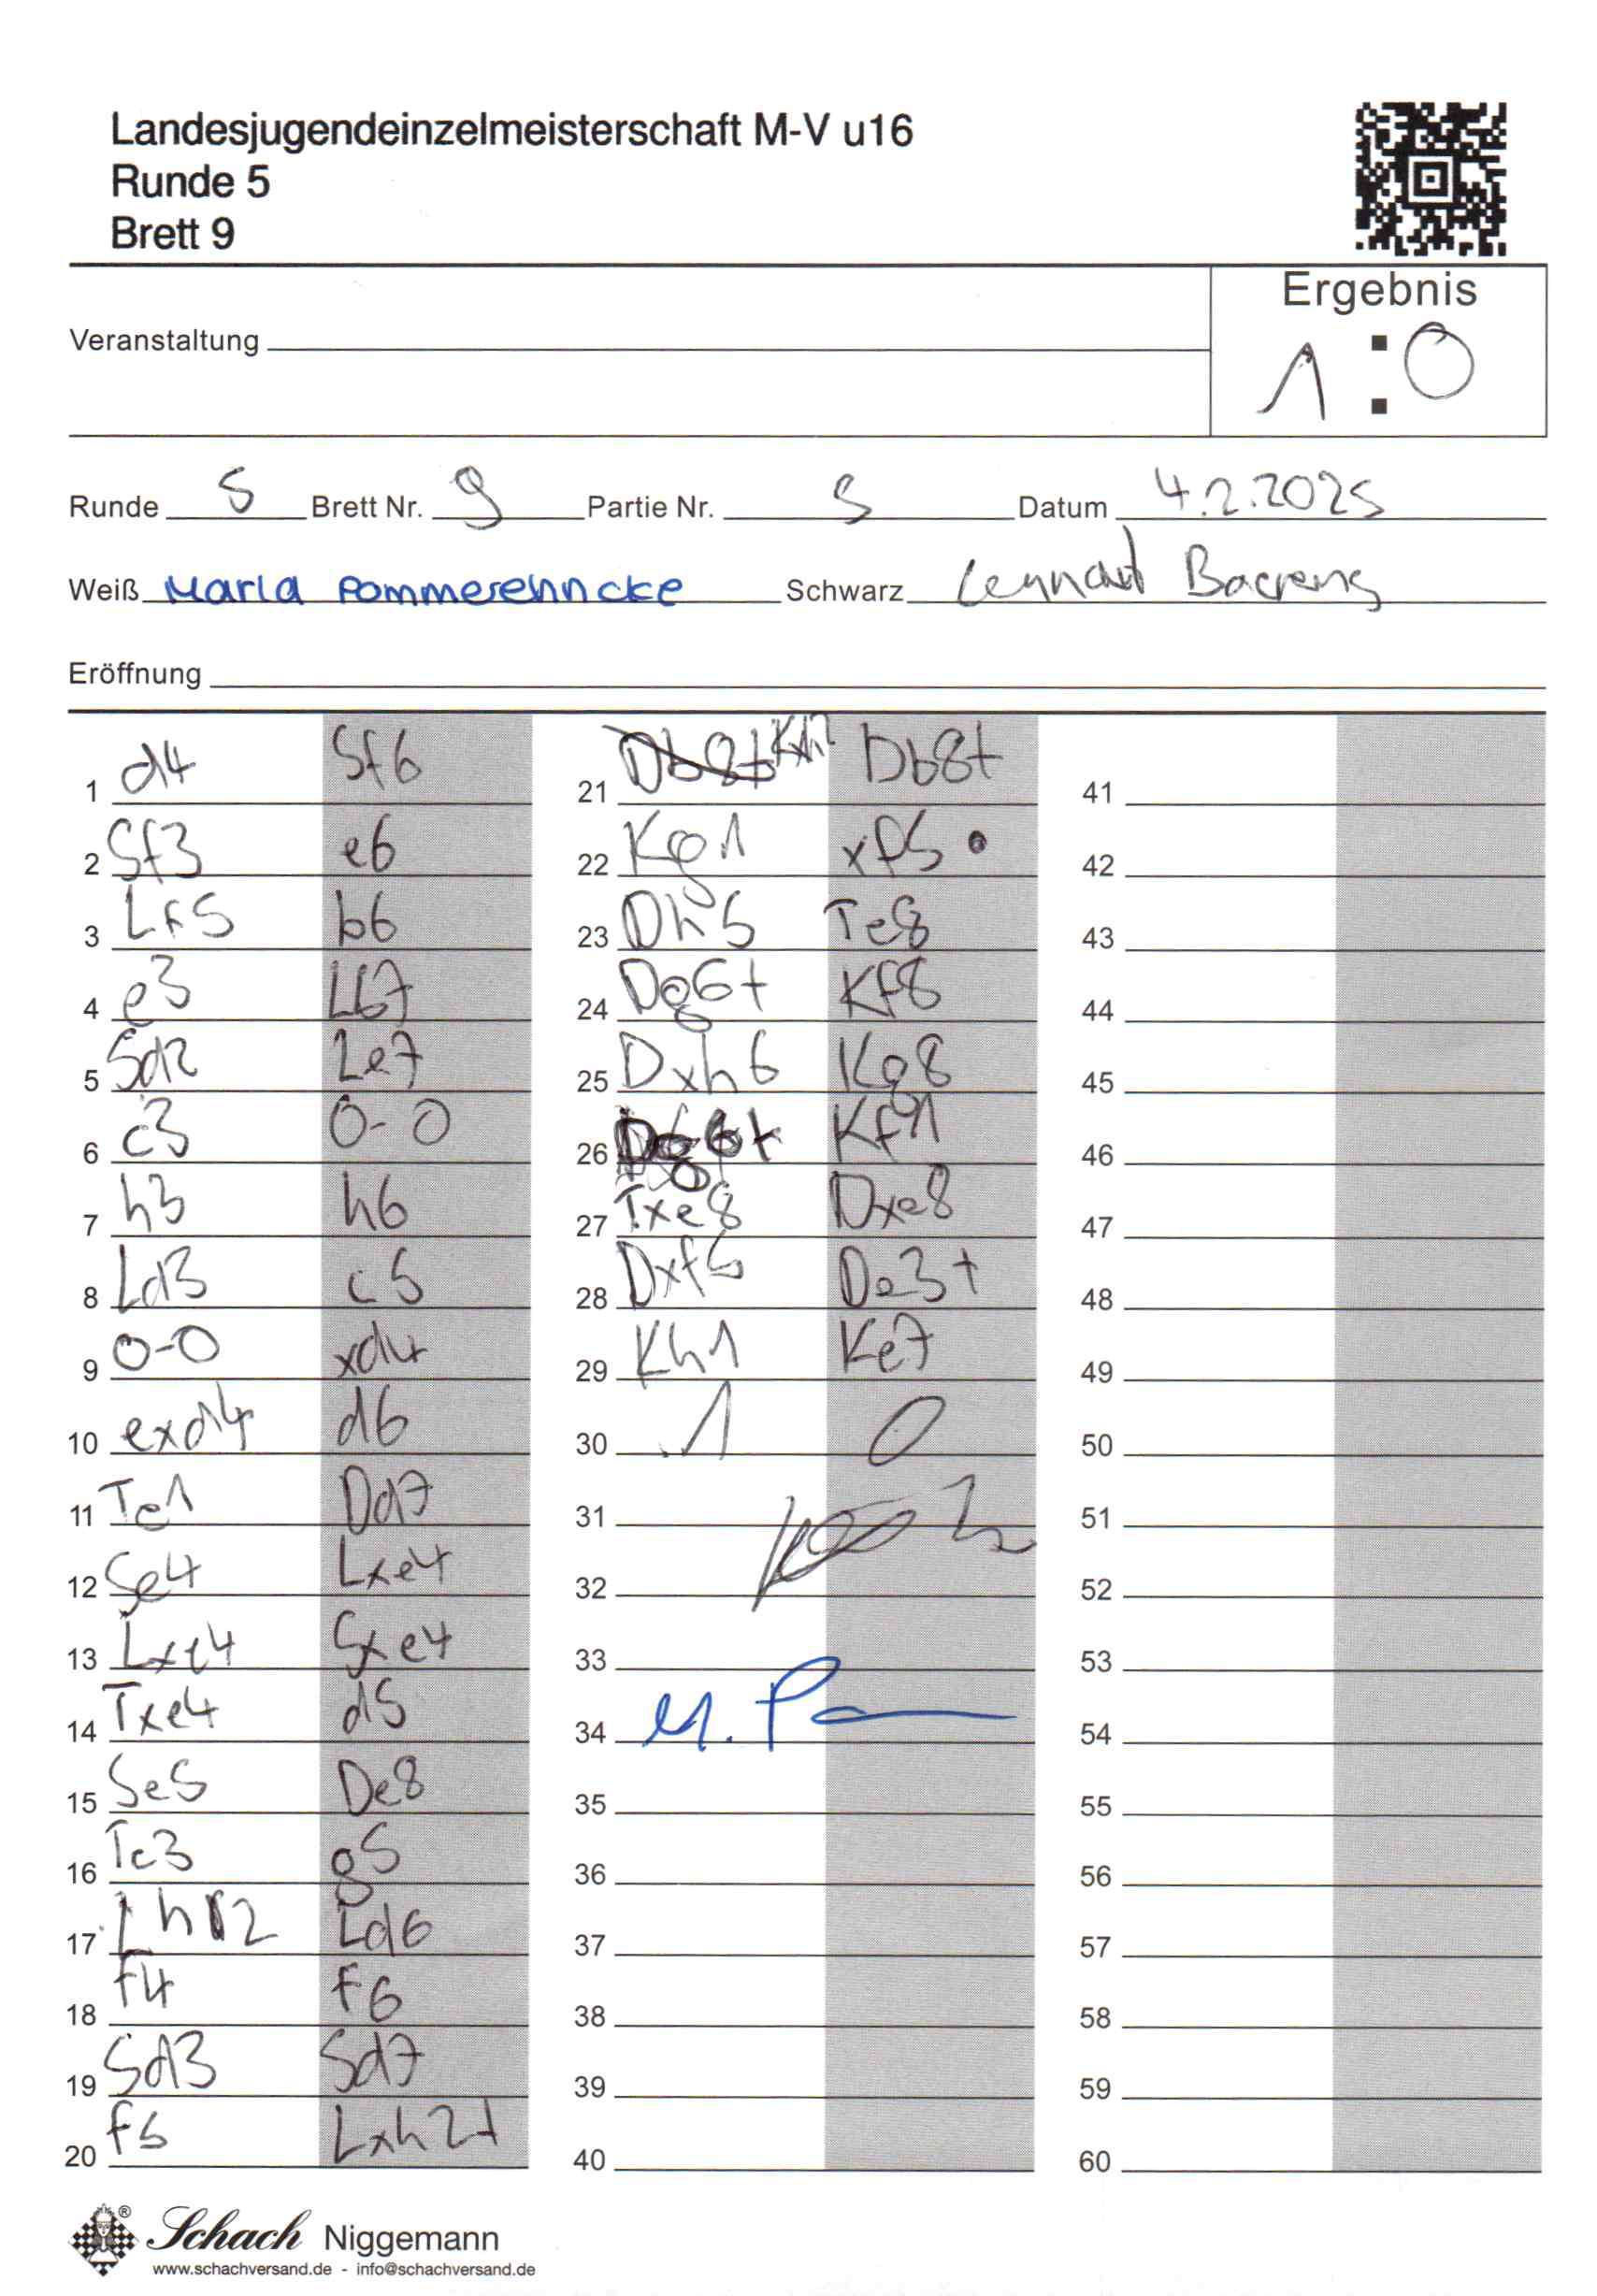 Landesjugendeinzelmeisterschaft M-V u16
Runde 5
Brett 9
Ergebnis
1 : 0
Veranstaltung
Runde 5 Brett Nr. 9 Partie Nr. 5 Datum 4.2.2025
Weiß Marla Pommerehncke Schwarz Lennart
Eröffnung
1 d4 Sf6
2 Sf3 e6
3 Lf5 b6
4 e3 Lb7
5 Sd2 Le7
6 c3 0-0
7 h3 h6
8 Ld3 c5
9 0-0 xd4
10 exd4 d6
11 Te1 Dd7
12 Se4 Lxe4
13 Lxe4 Sxe4
14 Txe4 d5
15 Se5 De8
16 Te3 g5
17 Lh2 Ld6
18 f4 f6
19 Sd3 Sd7
20 f5 Lxh2+
21 Kxh2 Db8+
22 Kg1 xf5
23 Dh5 Te8
24 Dg6+ Kf8
25 Dxh6 Kg8
26 Dg6+ Kf1
27 Txe8 Dxe8
28 Dxf5 De3+
29 Kh1 Ke7
30 1 0
31
32
33
34 M. P
35
36
37
38
39
40
41
42
43
44
45
46
47
48
49
50
51
52
53
54
55
56
57
58
59
60
Schach Niggemann
www.schachversand.de - info@schachversand.de